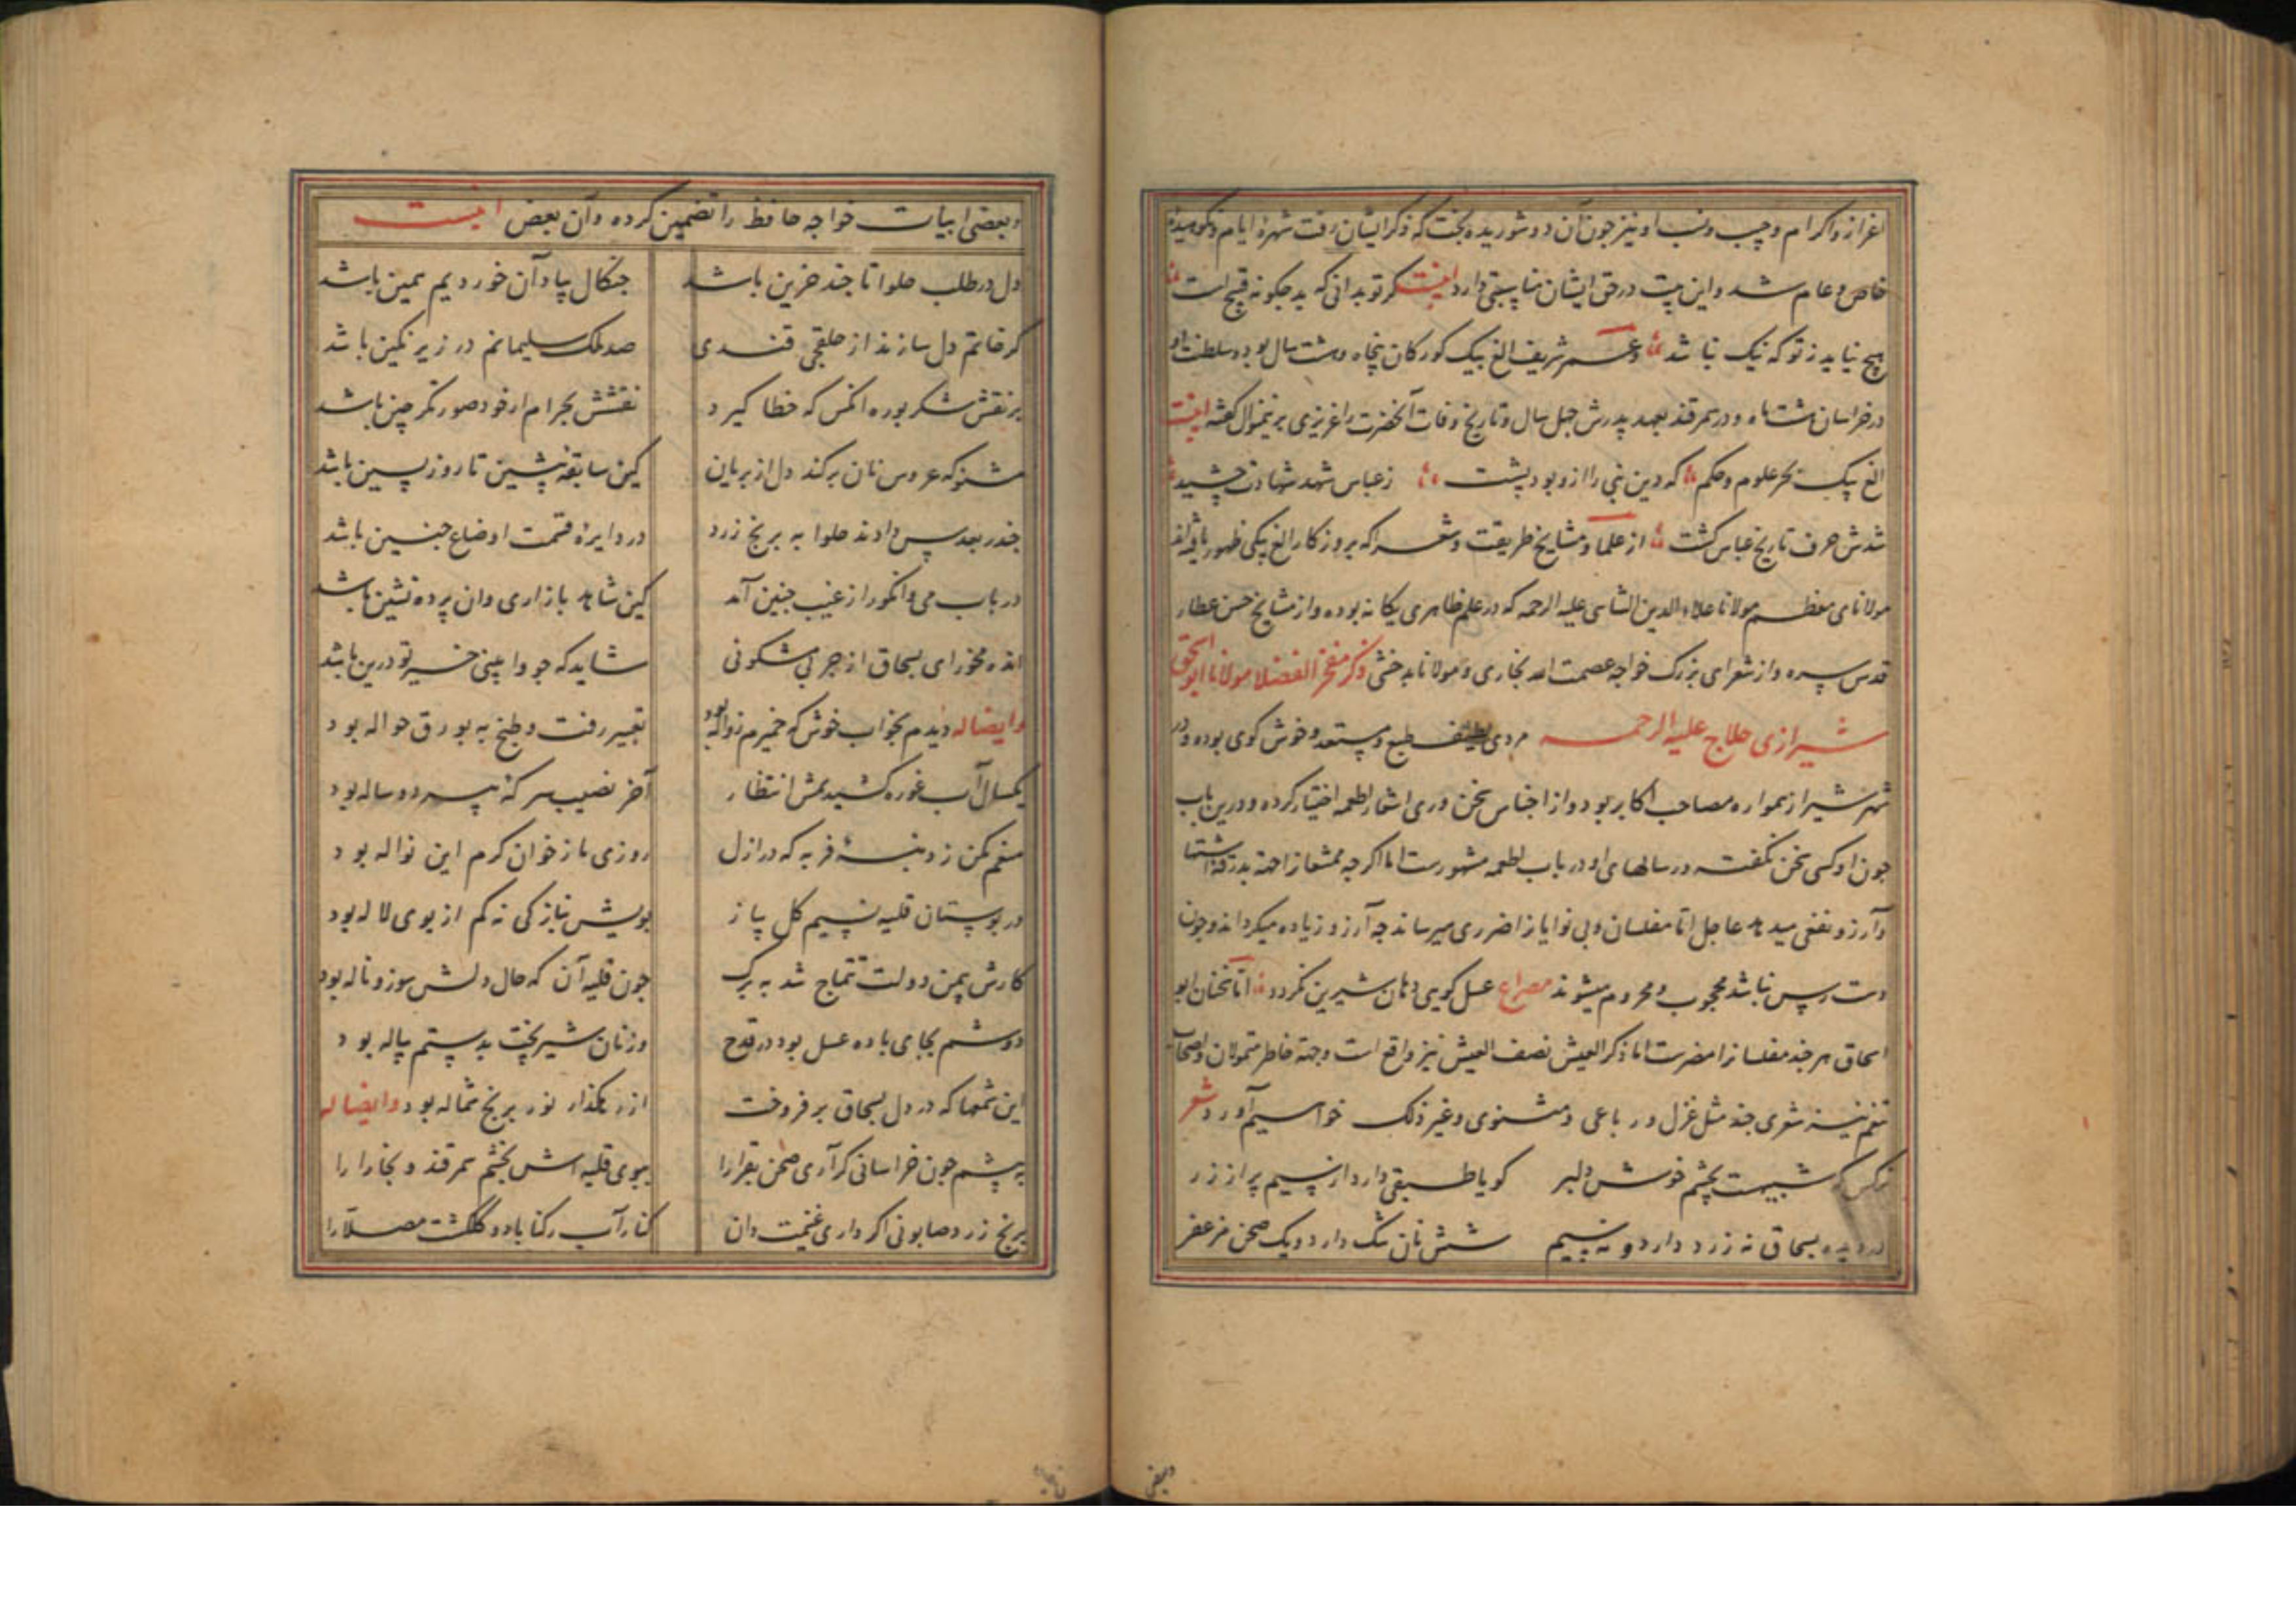 اعزاز و اکرام و حسب و نسب او نیز چون آن دو شوریده بخت که ذکر ایشان رفت شهرۀ ایام و نکوهیدۀ
خاص و عام شد و این بیت در حق ایشان مناسبتی دارد اینست گر تو بدانی که بد چکونه قبیح است
هیچ نیاید ز تو که نیک نباشد و عمر شریف الغ بیک کورکان پنجاه و هشت سال بود و سلطنت او
در خراسان هشت ماه و در سمرقند بعهد پدرش چهل سال و تاریخ وفات آنحضرت را عزیزی برینمنوال گفته اینست
الغ بیک بحر علوم و حکم که دین نبی را ازو بود پشت ز عباس شهد شهادت چشید
شدش حرف تاریخ عباس کشت از علما و مشایخ طریقت و شعرا که بروزکار الغ بیکی ظهور یافته‌اند
مولانای معظم مولانا علاء الدین الشاسی علیه الرحمه که در علم ظاهری یکانه بوده و از مشایخ حسن عطار
قدس سره و از شعرای بزرک خواجه عصمت الله بخاری و مولانا بدخشی ذکر مفخر الفضلا مولانا ابو اسحق
شیرازی حلاج علیه الرحمه مردی لطیف طبع و مستعد و خوش کوی بوده و در
شهر شیراز همواره مصاحب اکابر بود و از اجناس سخن وری اشعار اطعمه اختیار کرده و درین باب
چون او کسی سخن نکفته و رسالهای او در باب اطعمه مشهورست اما اکرچه ممتنعانرا جهة بدرقۀ اشتها
و آرزو نفعی میدهد عاجل اما مفلسان و بی نوایانرا ضرری میرساند چه آرزو زیاده میکرداند و چون
دست رس نباشد محجوب و محروم میشوند مصراع عسل کویی دهان شیرین نکردد اما سخنان ابو
اسحاق هر چند مفلسانرا مضرست اما ذکر العیش نصف العیش نیز واقع است و جهة خاطر متمولان و اصحاب
تنعم نیز شعری چند مثل غزل و رباعی و مثنوی و غیر ذلک خواهیم آورد شعر
نرکس که شبیهست بچشم خوش دلبر کویا طبقی دارد از سیم پر از زر
در دیده بسحاق نه زرد دارد و نه سیم شش نان تنک دارد و یک صحن مزعفر
وبعضی
وبعضی ابیات خواجه حافظ را تضمین کرده و آن بعض اینست
دل در طلب حلوا تا چند حزین باشد چنکال بیاد آن خوردیم همین باشد
کر خاتم دل سازند از حلقچی قندی صد ملک سلیمانم در زیر نکین باشد
بر نقش شکر بوره آنکس که خطا گیرد نقشش بحرام ار خود صورتکر چین باشد
مشنو که عروس نان برکند دل از بریان کین سابقه پیشین تا روز پسین باشد
چندر بعدس دادند حلوا به برنج زرد در دایرۀ قسمت اوضاع چنین باشد
در باب می و انکور از غیب چنین آمد کین شاهد بازاری وان پرده نشین باشد
انده مخور ای بسحاق از چربی شکونی شاید که چو وا بینی خیر تو درین باشد
وایضا له دیدم بخواب خوش که خمیرم نواله بود تعبیر رفت و طبخ به بورق حواله بود
یکسال آب غوره کشیدیمش انتظار آخر نصیب سرکۀ پیر دو ساله بود
منعم مکن ز دنبۀ فربه که در ازل روزی ما ز خوان کرم این نواله بود
در بوستان قلیه نسیم کل پیاز بویش بنازکی نه کم از بوی لاله بود
کارش بیمن دولت تتماج شد به برک چون قلیه آن که حال دلش سوز و ناله بود
دوشم بجای باده عسل بود در قدح وز نان شیر پخت بدستم پیاله بود
این شمعها که در دل بسحاق بر فروخت از رهکذار نور برنج شماله بود وایضا له
به پشم چون خراسانی کر آری صحن بقرا را ببوی قلیه اش بخشم سمرقند و بخارا را
برنج زرد و صابونی اکر داری غنیمت دان کنار آب رکناباد و کلکشت مصلا را